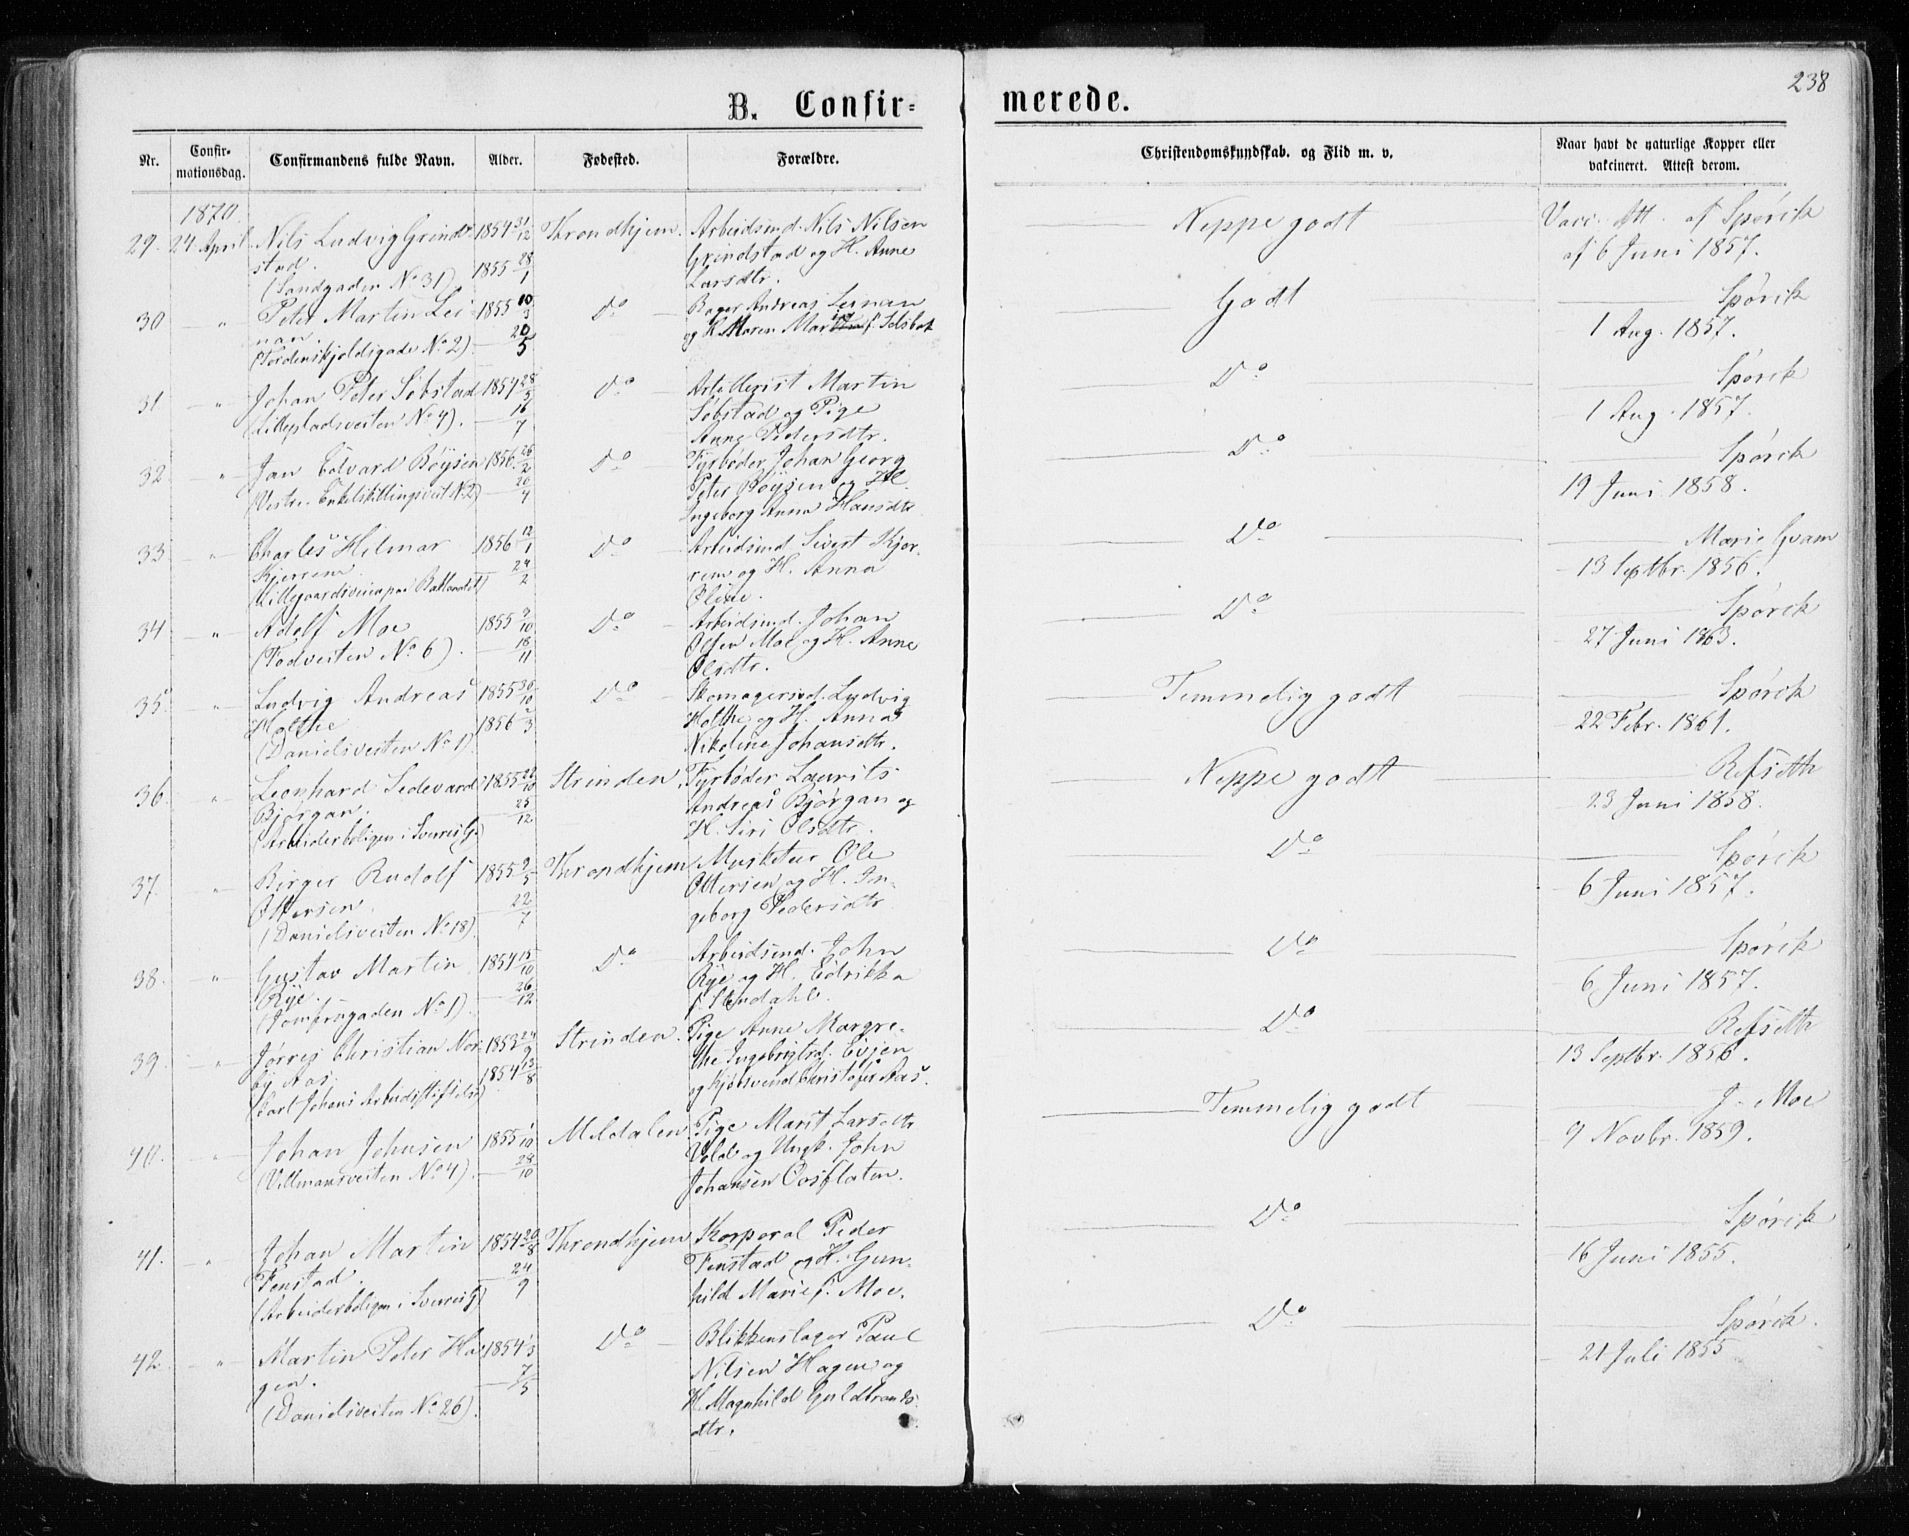 238
B. Confirmerede.
Nr. Confirmationsdag. Confirmandens fulde Navn. Alder. Fødested. Forældre. Christendomskundskab. og Flid m. v. Naar havt de naturlige Kopper eller vakcineret. Attest derom.
1870.
29. 24 April Nils Ludvig Grind- 1854 31/12 Throndhjem. Arbeidsmd. Nils Nilsen Neppe godt Vacc. Att. af Spørck
stad. 1855 28/1 Grindstad og H. Anne af 6 Juni 1857.
(Sandgaden No 31) Larsdtr.
30 " Peter Martin Lei- 1855 10/3 Do Bager Andreas Leinan Godt Spørck
nan. 20/5 og H. Maren f. Selsbak 1 Aug. 1857.
(Tordenskjoldsgade No 2)
31 " Johan Peter Sobstad 1854 28/5 Do Artillerist Martin Do Spørck
(Lillepladsveiten No 4). 16/7 Sobstad og Pige 1 Aug. 1857.
Anne Pedersdtr.
32 " Jan Edvard Böysen 1856 26/2 Do Fyrbøder Johan Georg Do Spørck
(Vestre Enkelskillingsveit N. 2) 20/4 Peter Böysen og H. 19 Juni 1858.
Ingeborg Anna Hansdtr
33 " Charles Hilmar 1856 12/1 Do Arbeidsmd Sivert Kjer- Do Marie Qvam
Kjerrem 24/2 rem og H. Anna 13 Septbr. 1856.
(Lillegaardsveiten paa Baklandet) Oline.
34 " Adolf Moe 1855 9/10 Do Arbeidsmd. Johan Do Spørck
(Vodveiten No 6). 18/11 Olsen Moe og H. Anne 27 Juni 1863.
Olsdtr.
35. " Ludvig Andreas 1855 30/10 Do Skomagersvd. Ludvig Temmelig godt Spørck
Holthe 1856 2/3 Holthe og H. Anna 22 Febr. 1861.
(Danielsveiten No 1) Nikoline Johansdtr.
36. " Leonhard Sedevard 1855 Strinden. Fyrbøder Laurits Neppe godt Refseth
Bjørgan. 25/12 Andreas Bjørgan og 23 Juni 1858.
(Arbeiderboligen i Sverresg.) H. Siri Olsdtr.
37. " Birger Rudolf 1855 2/5 Throndhjem Musketer Ole Do Spørck
Ottersen 22/7 Ottersen og H. In- 6 Juni 1857.
(Danielsveiten No 18) geborg Pedersdtr
38. " Gustav Martin 1854 15/10 Do Arbeidsmd. John Do Spørck
Rye. 26/12 Rye og H. Edrikka 6 Juni 1857.
(Jomfrugaden No 1) f. Stendahl.
39. " Jørres Christian Nor- 1853 24/9 Strinden. Pige Anne Margre- Do Refseth
by Aas. 1854 13/8 the Ingebrigtsd. Evjen 13 Septbr. 1856.
(Carl Johans Arbeidsstiftelse) og Kjøbsvend Christofer Aas.
40. " Johan Johnsen 1855 1/10 Meldalen Pige Marit Larsdtr Temmelig godt J. Moe
(Villmansveiten No 4) 28/10 Vold og Ungk. John 9 Novbr. 1859.
Johansen Oosflaten.
41. " Johan Martin 1854 20/8 Throndhjem Korporal Peder Do Spørck
Fenstad. 24/9 Fenstad og H. Gun- 16 Juni 1855.
(Arbeiderboligen i Sverresg) hild Marie f. Moe.
42. " Martin Peter Ha- 1854 1/3 Do Blikkenslager Paul Do Spørck.
gen. 7/5 Nilsen Hagen og 21 Juli 1855
(Danielsveiten No 26). H. Magnhild Guldbrands-
dtr.